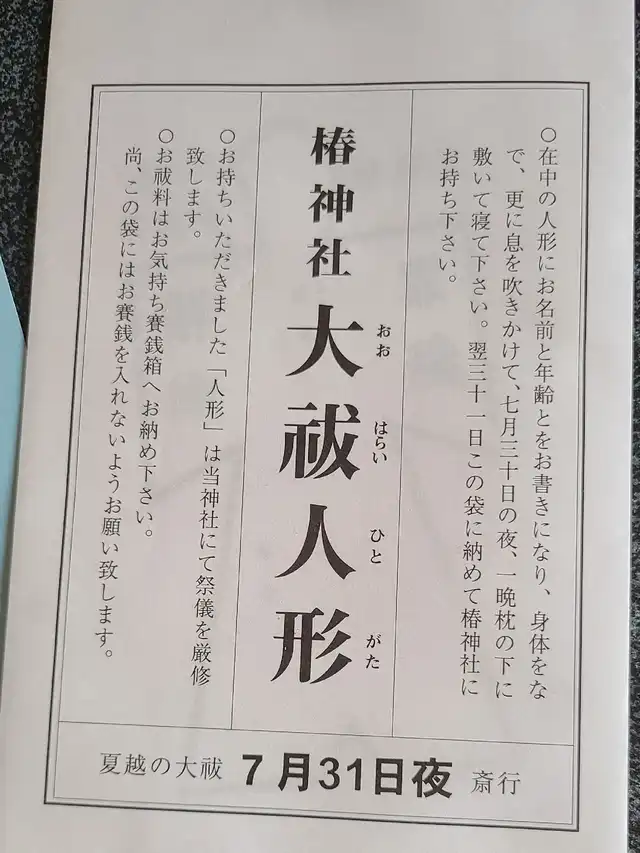 ○在中の人形にお名前と年齢とをお書きになり、身体をな
で、更に息を吹きかけて、七月三十日の夜、一晩枕の下に
敷いて寝て下さい。翌三十一日この袋に納めて椿神社に
お持ち下さい。
椿神社大祓人形
おおはらいひとがた
○お持ちいただきました「人形」は当神社にて祭儀を厳修
致します。
○お祓料はお気持ち賽銭箱へお納め下さい。
尚、この袋にはお賽銭を入れないようお願い致します。
夏越の大祓 7月31日夜 斎行